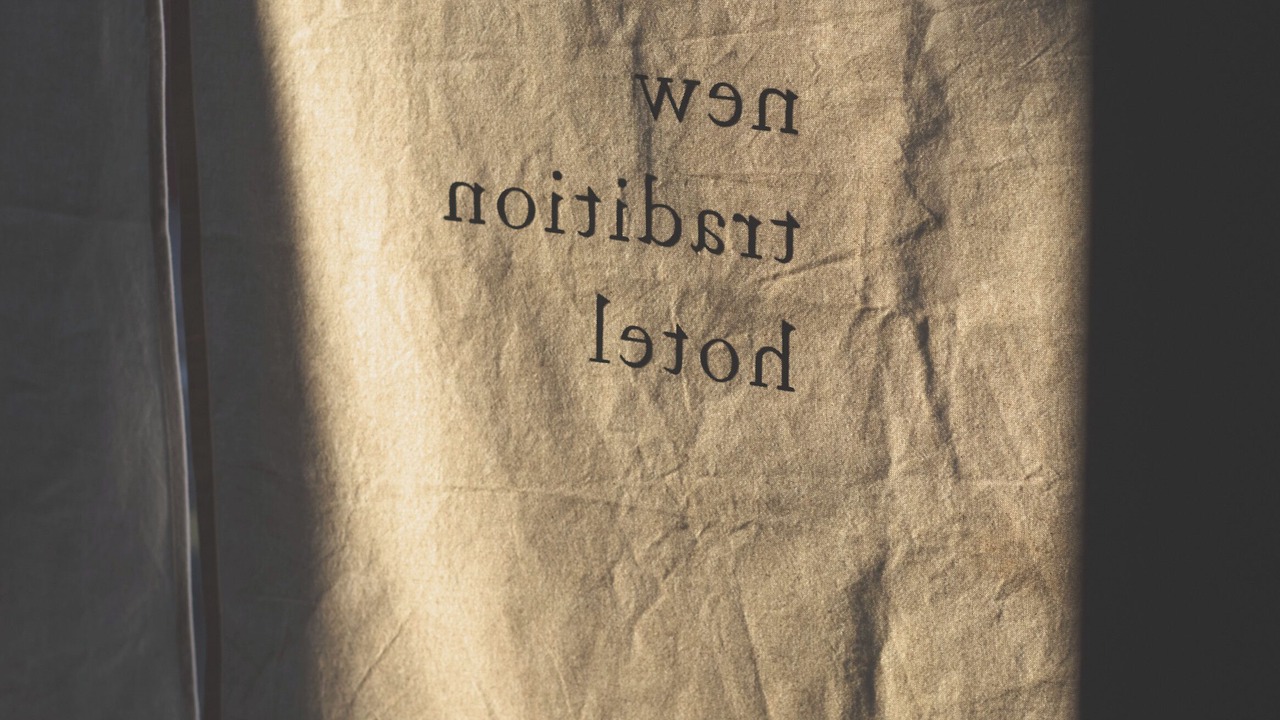 new
tradition
hotel